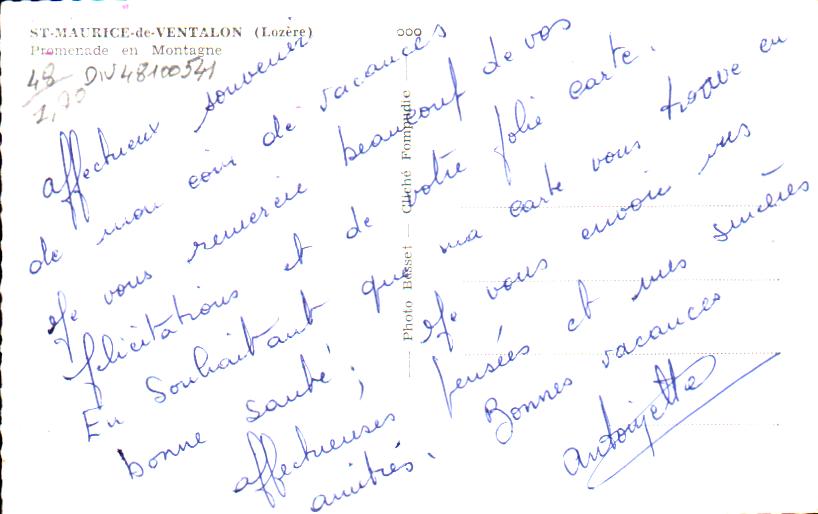 ST-MAURICE-de-VENTALON (Lozère)
Promenade en Montagne
48 DIV48100541
1,00
ooo
Photo Besset — Cliché Fompudie
affectueux souvenir
de mon coin de vacances
Je vous remercie beaucoup de vos
félicitations et de votre jolie carte.
En souhaitant que ma carte vous trouve en
bonne santé ; Je vous envoie mes
affectueuses pensées et mes sincères
amitiés. Bonnes vacances
Antoinette